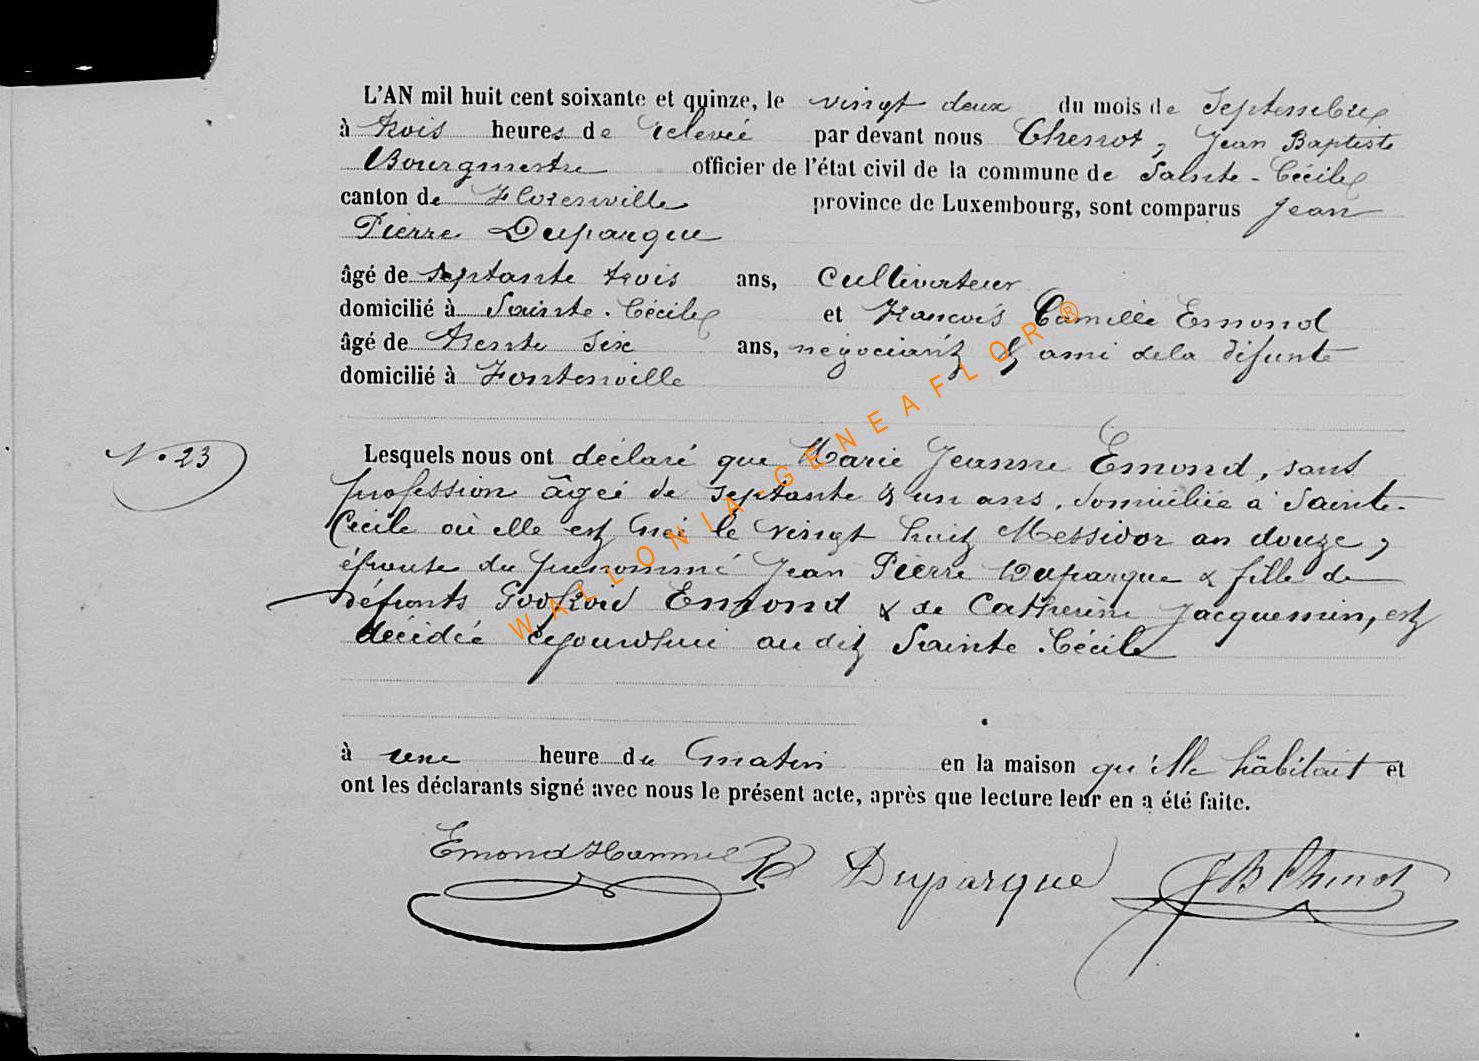 L'AN mil huit cent soixante et quinze, le vingt deux du mois de Septembre
à trois heures de relevée par devant nous Chenot, Jean Baptiste
Bourgmestre officier de l'état civil de la commune de Sainte-Cécile
canton de Florenville province de Luxembourg, sont comparus Jean
Pierre Duparque
âgé de septante trois ans, Cultivateur
domicilié à Sainte-Cécile et François Camille Emond
âgé de trente six ans, négociant & ami de la défunte
domicilié à Fontenoille
N° 23
Lesquels nous ont déclaré que Marie Jeanne Emond, sans
profession âgée de septante & un ans, domiciliée à Sainte-
Cécile où elle est née le vingt huit Messidor an douze,
épouse du prénommé Jean Pierre Duparque & fille de
défunts Emond & de Catherine Jacquemin, est
décédée cejourd'hui au dit Sainte-Cécile
à une heure du matin en la maison qu'elle habitait et
ont les déclarants signé avec nous le présent acte, après que lecture leur en a été faite.
Emond Duparque JB Chenot
WALLONIA-GENEAFLOR®